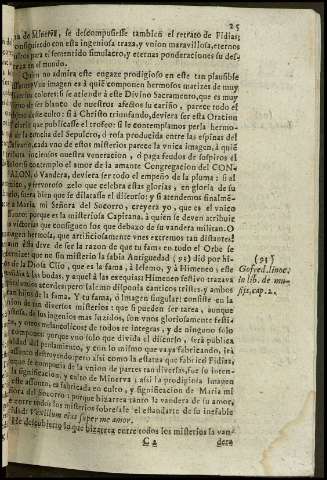 25
de Minerva, se descompusiesse tambien el retrato de Fidias;
consiguiendo con esta ingeniosa traza, y vnion maravillosa, eternos
para el fementido simulacro, y eternas ponderaciones su des-
en el mundo.
Quien no admira este engaze prodigioso en este tan plausible
Vna imagen es à quien componen hermosos matizes de muy
colores: si se atiende à este Divino Sacramento, que es muy
de ser blanco de nuestros afectos su cariño, parece todo el
de su culto: si à Christo triunfando, deviera ser esta Oracion
que publicasse el trofeo: si le contemplamos perla hermo-
la concha del Sepulcro, ò rosa producida entre las espinas del
cada vno de estos misterios parece la vnica imagen, à quiē
inciensos nuestra veneracion, ò paga feudos de suspiros el
si contemplo el amor de la amante Congregacion del CON-
ALON, ò Vandera, deviera ser todo el empeño de la pluma: si el
y fervoroso zelo que celebra estas glorias, en gloria de su
fuera bien que se dilatasse el discurso; y si atendemos finalmē-
à Maria mi Señora del Socorro, creyera yo, que es el vnico
porque es la misteriosa Capitana, à quien se deven atribuir
victorias que consiguen los que debaxo de su vandera militan. O
imagen hermosa, que artificiosamente vnes extremos tan distantes!
esta deve de ser la razon de que tu fama en todo el Orbe se
que no sin misterio la sabia Antiguedad (93) diò por hi-
la Diosa Clio, que es la fama, à Ialemo, y à Himeneo; este
à las bodas, y aquel à las exequias: Himeneo festivo trazava
acordes: pero Ialemo disponia canticos tristes, y ambos
hijos de la fama. Y tu fama, ò imagen singular! consiste en la
vnion de tan diversos misterios: que si pueden ser tarea, aunque
de los ingenios mas luzidos, son vnos gloriosamente festi-
y otros melancolicos: de todos te integras, y de ninguno solo
porque vno solo que divida el discurso, serà publica
del pensamiento, y con lo mismo que vaya fabricando, irà
destruyendo: pero assi como la estatua que fabricò Fidias,
se componia de la vnion de partes tan diversas, fue su inten-
significacion, y culto de Minerva: assi la prodigiosa Imagen
este assunto, es fabricada en culto, y significacion de Maria mi
Señora del Socorro: porque bizarrea tanto la vandera de su amor,
entre todos los misterios sobresale el estandarte de su inefable
Vexillum eius super me amor.
He descubierto lo que bizarrea entre todos los misterios la van-
C 2
dera
(93)
in lib. de mu-
sis, cap. 2.